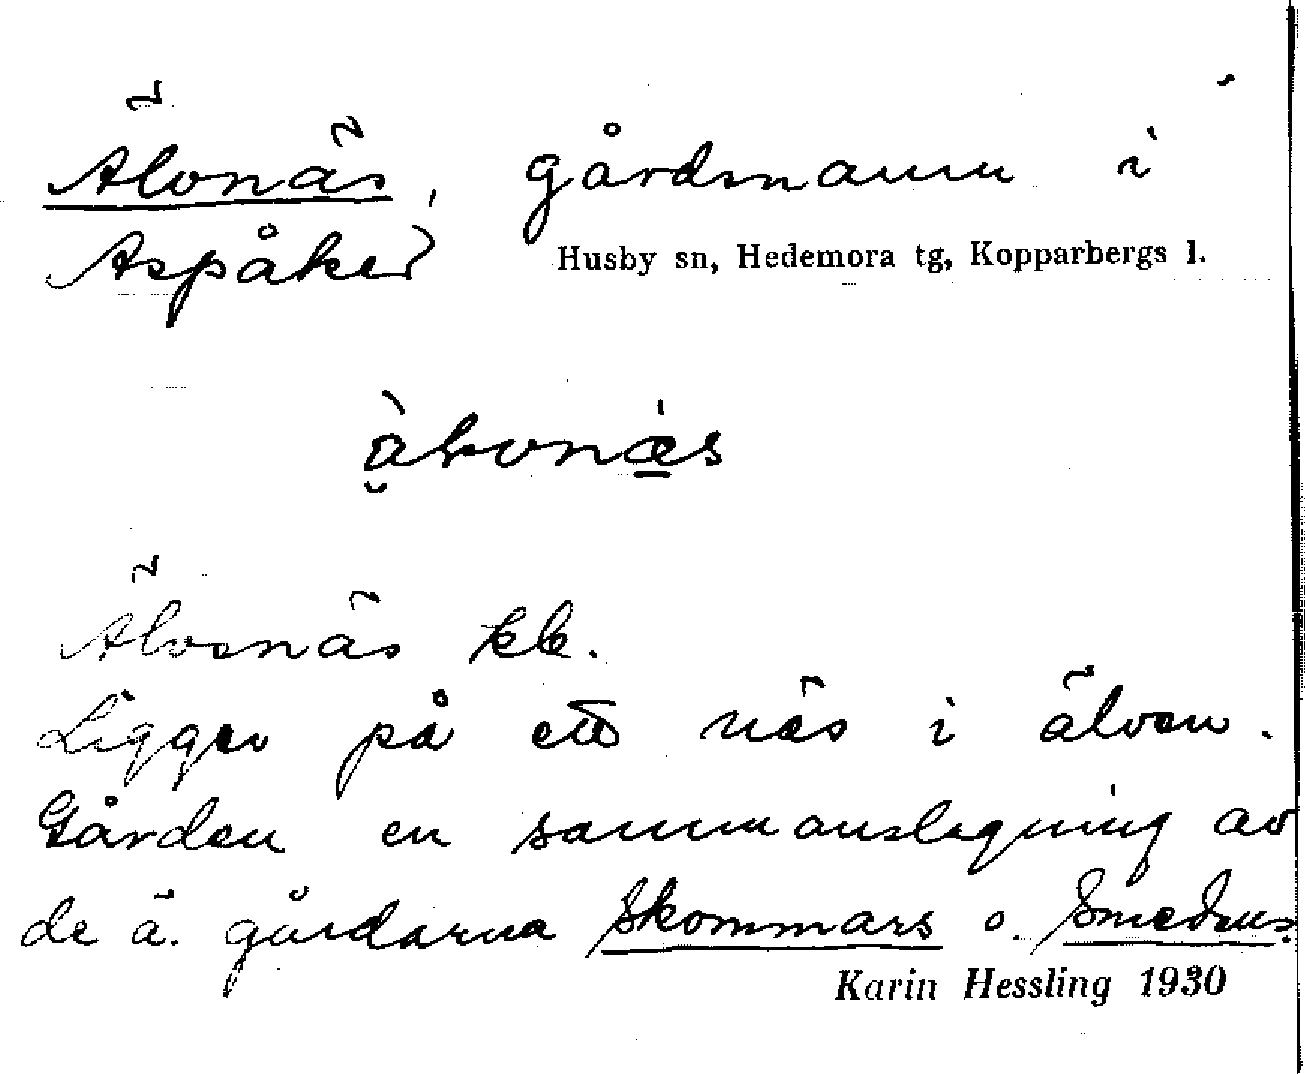 Älvnäs, gårdsnamn i
Aspåker
Husby sn, Hedemora tg, Kopparbergs l.
Älvsnäs kb.
Ligger på ett näs i älven.
Gården en sammanslagning av
de ä. gårdarna Skommars o. Smedens.
Karin Hessling 1930